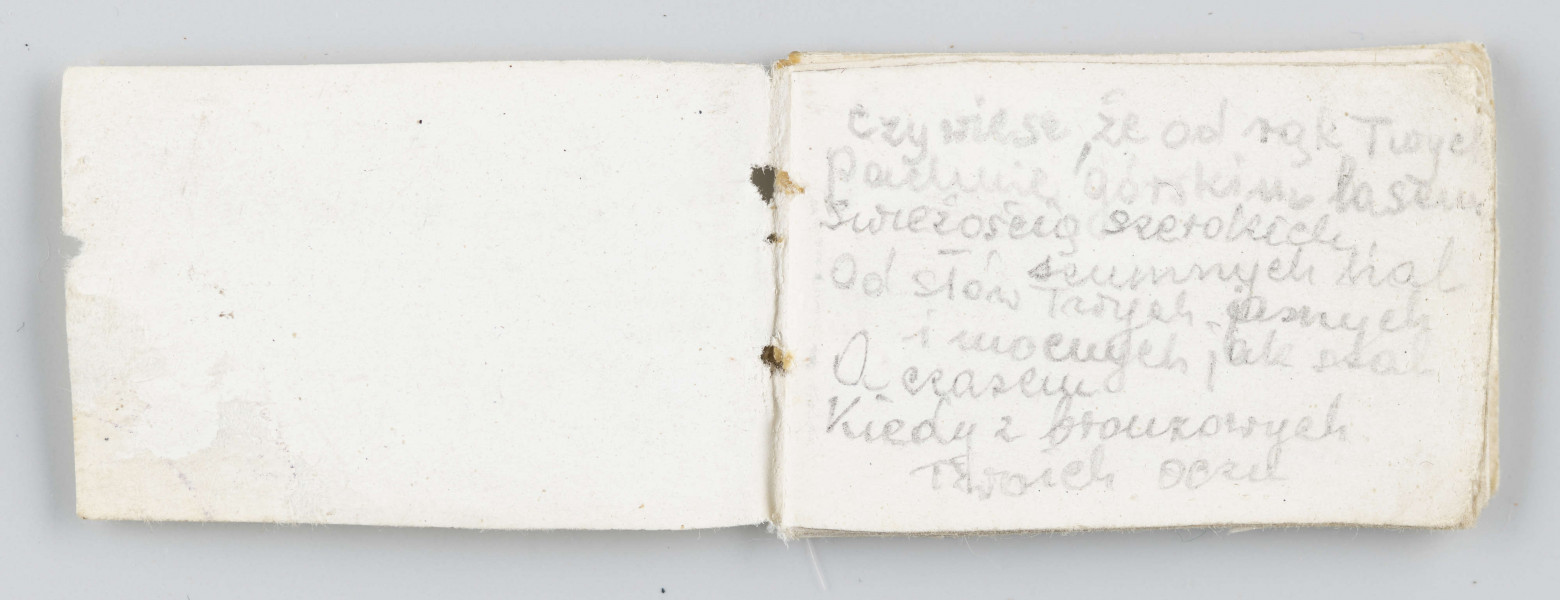 Czy wiesz, że od rąk Twych
Pachnie górskim lasem
Świeżością szerokich,
szumnych hal
Od słów Twych jasnych
i mocnych, jak stal
A czasem
Kiedy z bronzowych
Twoich oczu